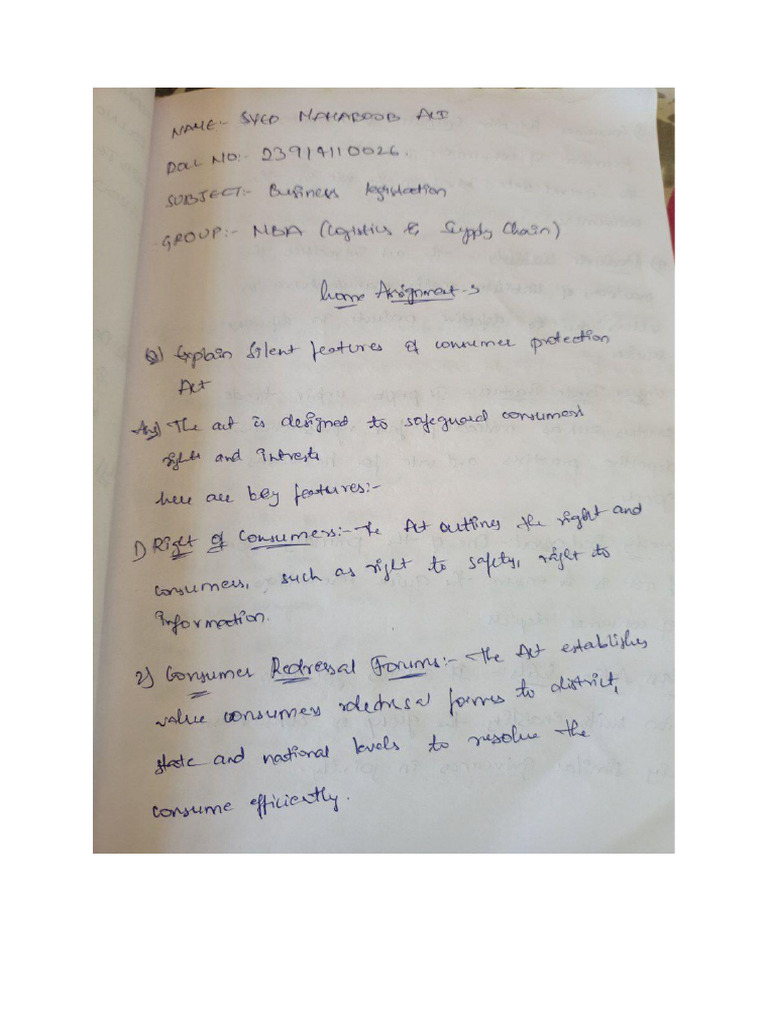 NAME:- SYED MAHABOOB ALI
ROLL NO:- 23914110026
SUBJECT:- Business legislation
GROUP:- MBA (Logistics & Supply Chain)
home Assignment-3
Q) Explain Silent features of consumer protection
Act
Ans) The act is designed to safeguard consumers
rights and Intrests
here are key features:-
1) Right of Consumers:- The Act outlines the right and
consumers, such as right to safety, right to
Information.
2) Consumer Redressal Forums:- The Act establishes
value consumers redressal forms to district,
state and national levels to resolve the
consume efficiently.